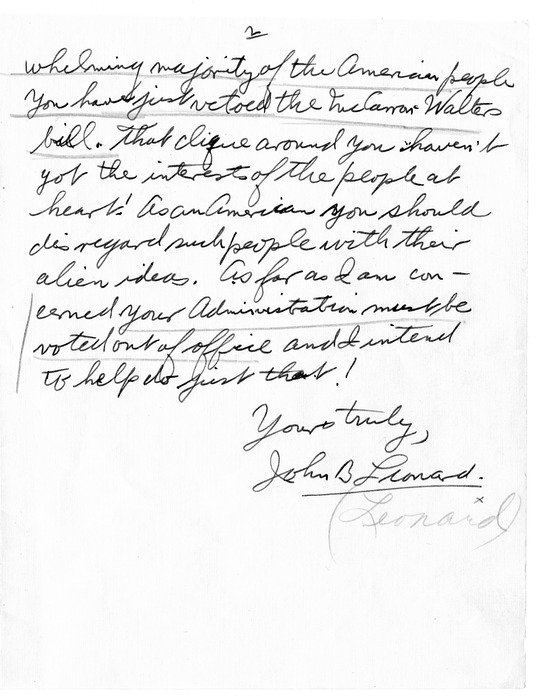 2
whelming majority of the American people
You have just vetoed the McCarran Walters
bill. That clique around you haven't
got the interests of the people at
heart! As an American you should
disregard such people with their
alien ideas. As far as I am con-
cerned your Administration must be
voted out of office and I intend
to help do just that!
Yours truly,
John B Leonard.
x
(Leonard)